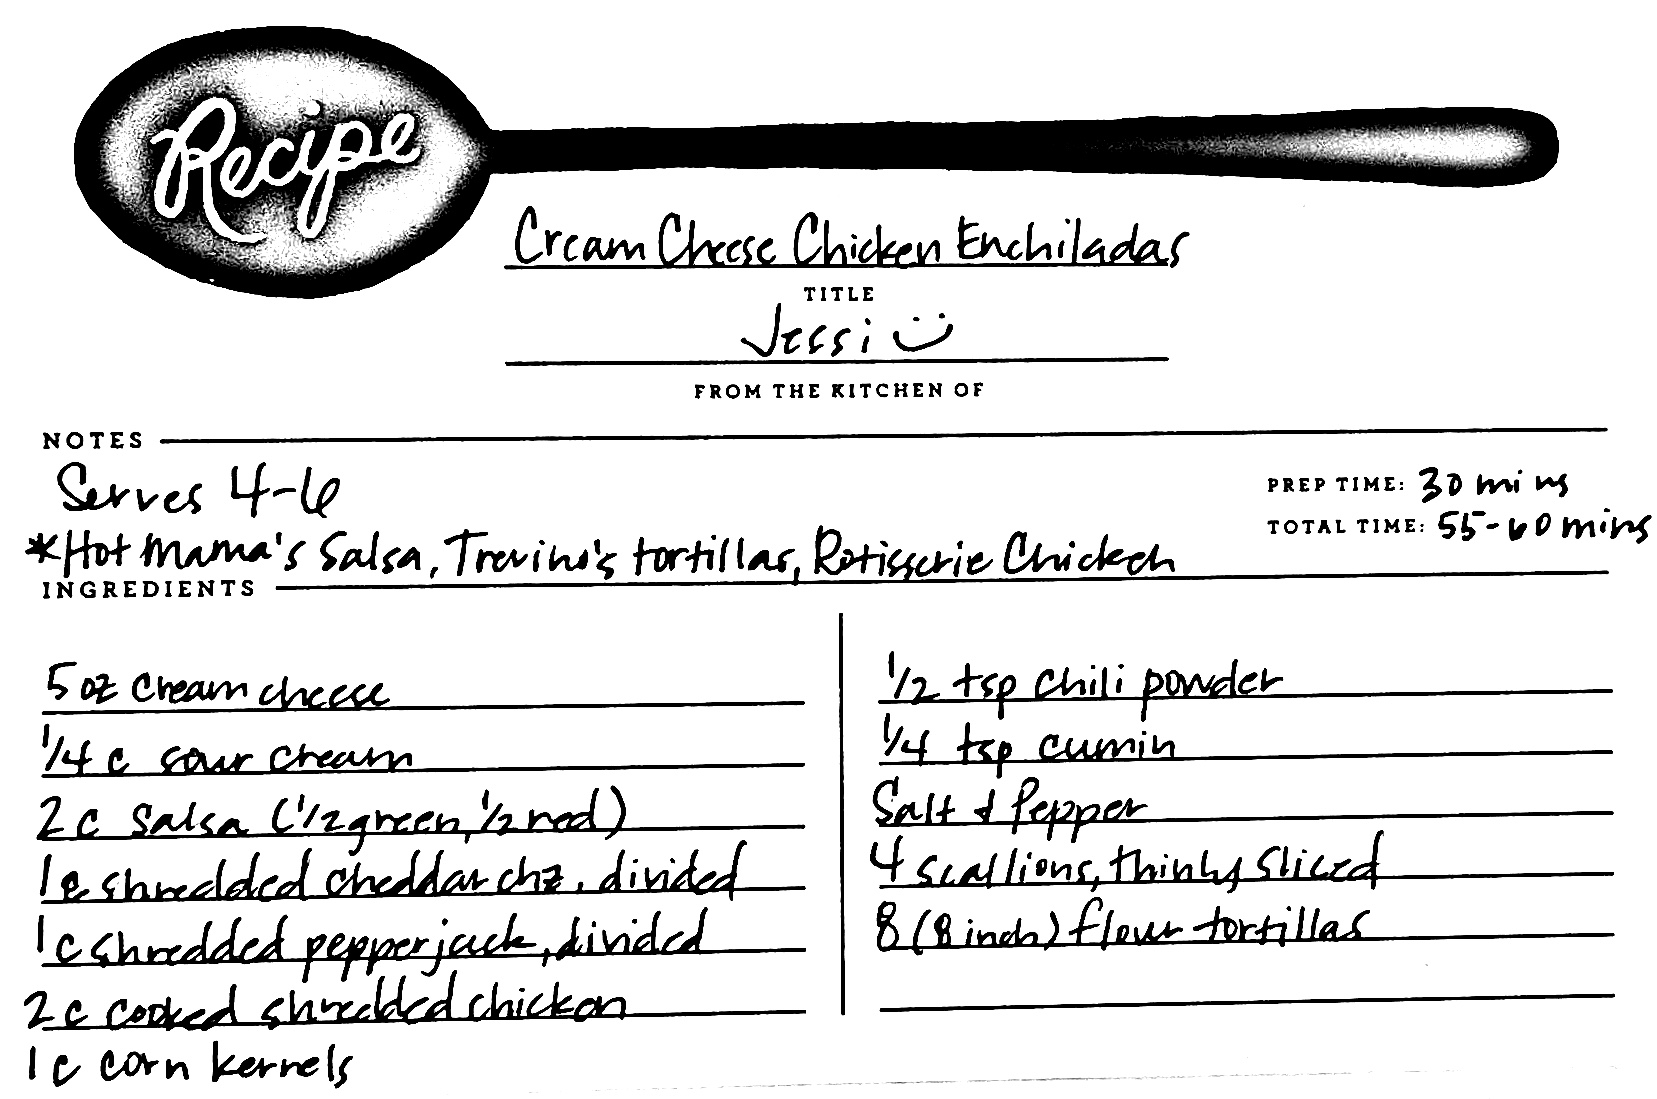 Recipe
Cream Cheese Chicken Enchiladas
TITLE
Jessi
FROM THE KITCHEN OF
NOTES
Serves 4-6
PREP TIME: 30 mins
TOTAL TIME: 55-60 mins
*Hot Mama's Salsa, Trevino's tortillas, Rotisserie Chicken
INGREDIENTS
5 oz cream cheese
1/4 c sour cream
2 c salsa (1/2 green, 1/2 red)
1 c shredded cheddar chz, divided
1 c shredded pepperjack, divided
2 c cooked shredded chicken
1 c corn kernels
1/2 tsp chili powder
1/4 tsp cumin
Salt & Pepper
4 scallions, thinly sliced
8 (8 inch) flour tortillas